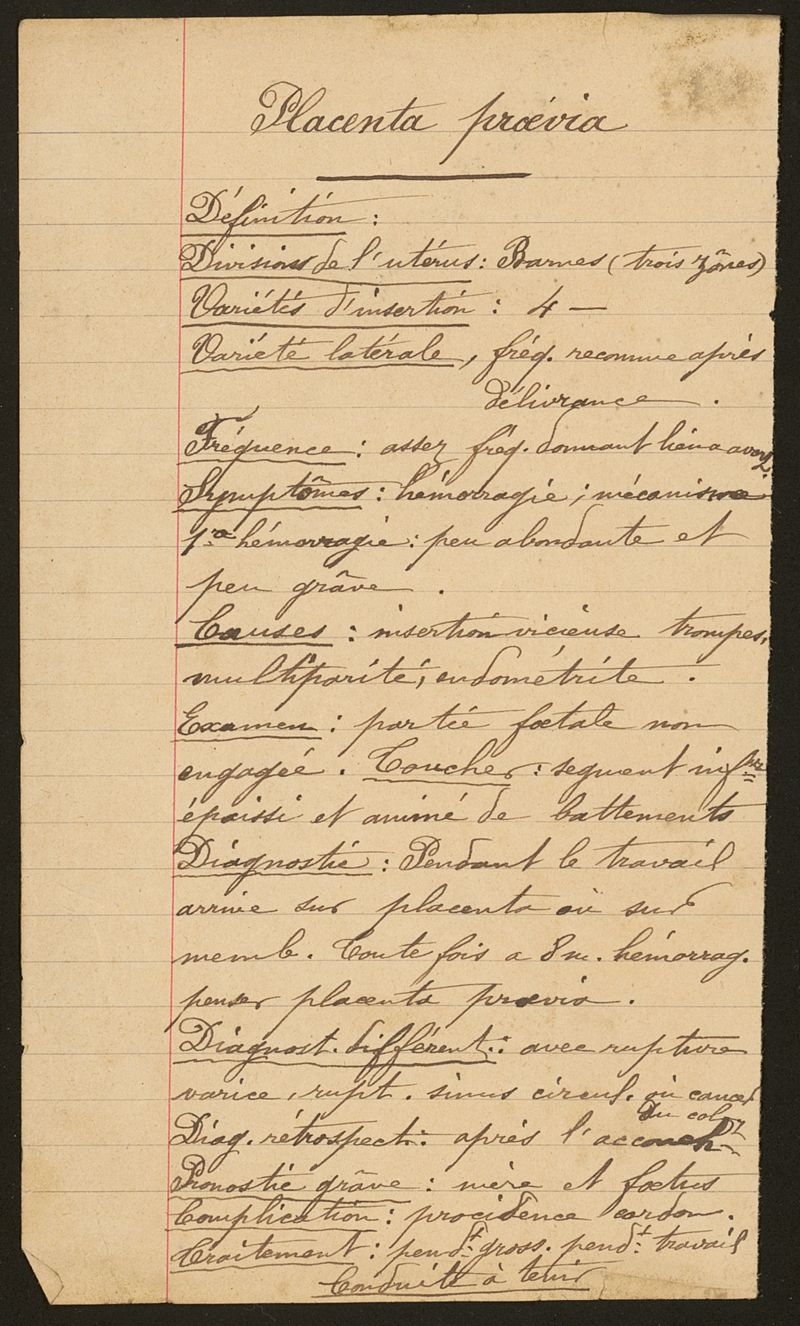 Placenta prœvia
Définition :
Divisions de l'utérus : Barnes (trois zônes)
Variétés d'insertion : 4 —
Variété latérale, fréq. reconnue après
délivrance .
Fréquence : assez fréq. donnant lieu a
Symptômes : hémorragie ; mécanisme
1re hémorragie : peu abondante et
peu grâve .
Causes : insertion vicieuse trompes,
multiparité, endométrite .
Examen : partie fœtale non
engagée . Toucher : segment infre
épaissi et animé de battements
Diagnostic : Pendant le travail
arrive sur placenta où sur
memb. Toute fois a 8 m. hémorrag.
penser placenta prœvia .
Diagnost. différent. : avec rupture
varice, rupt. sinus circul. où cancer
du col
Diag. rétrospect. : après l'accouch
Pronostic grâve : mère et fœtus
Complication : procidence cordon .
Traitement : pendt gross. pendt travail
Conduite à tenir